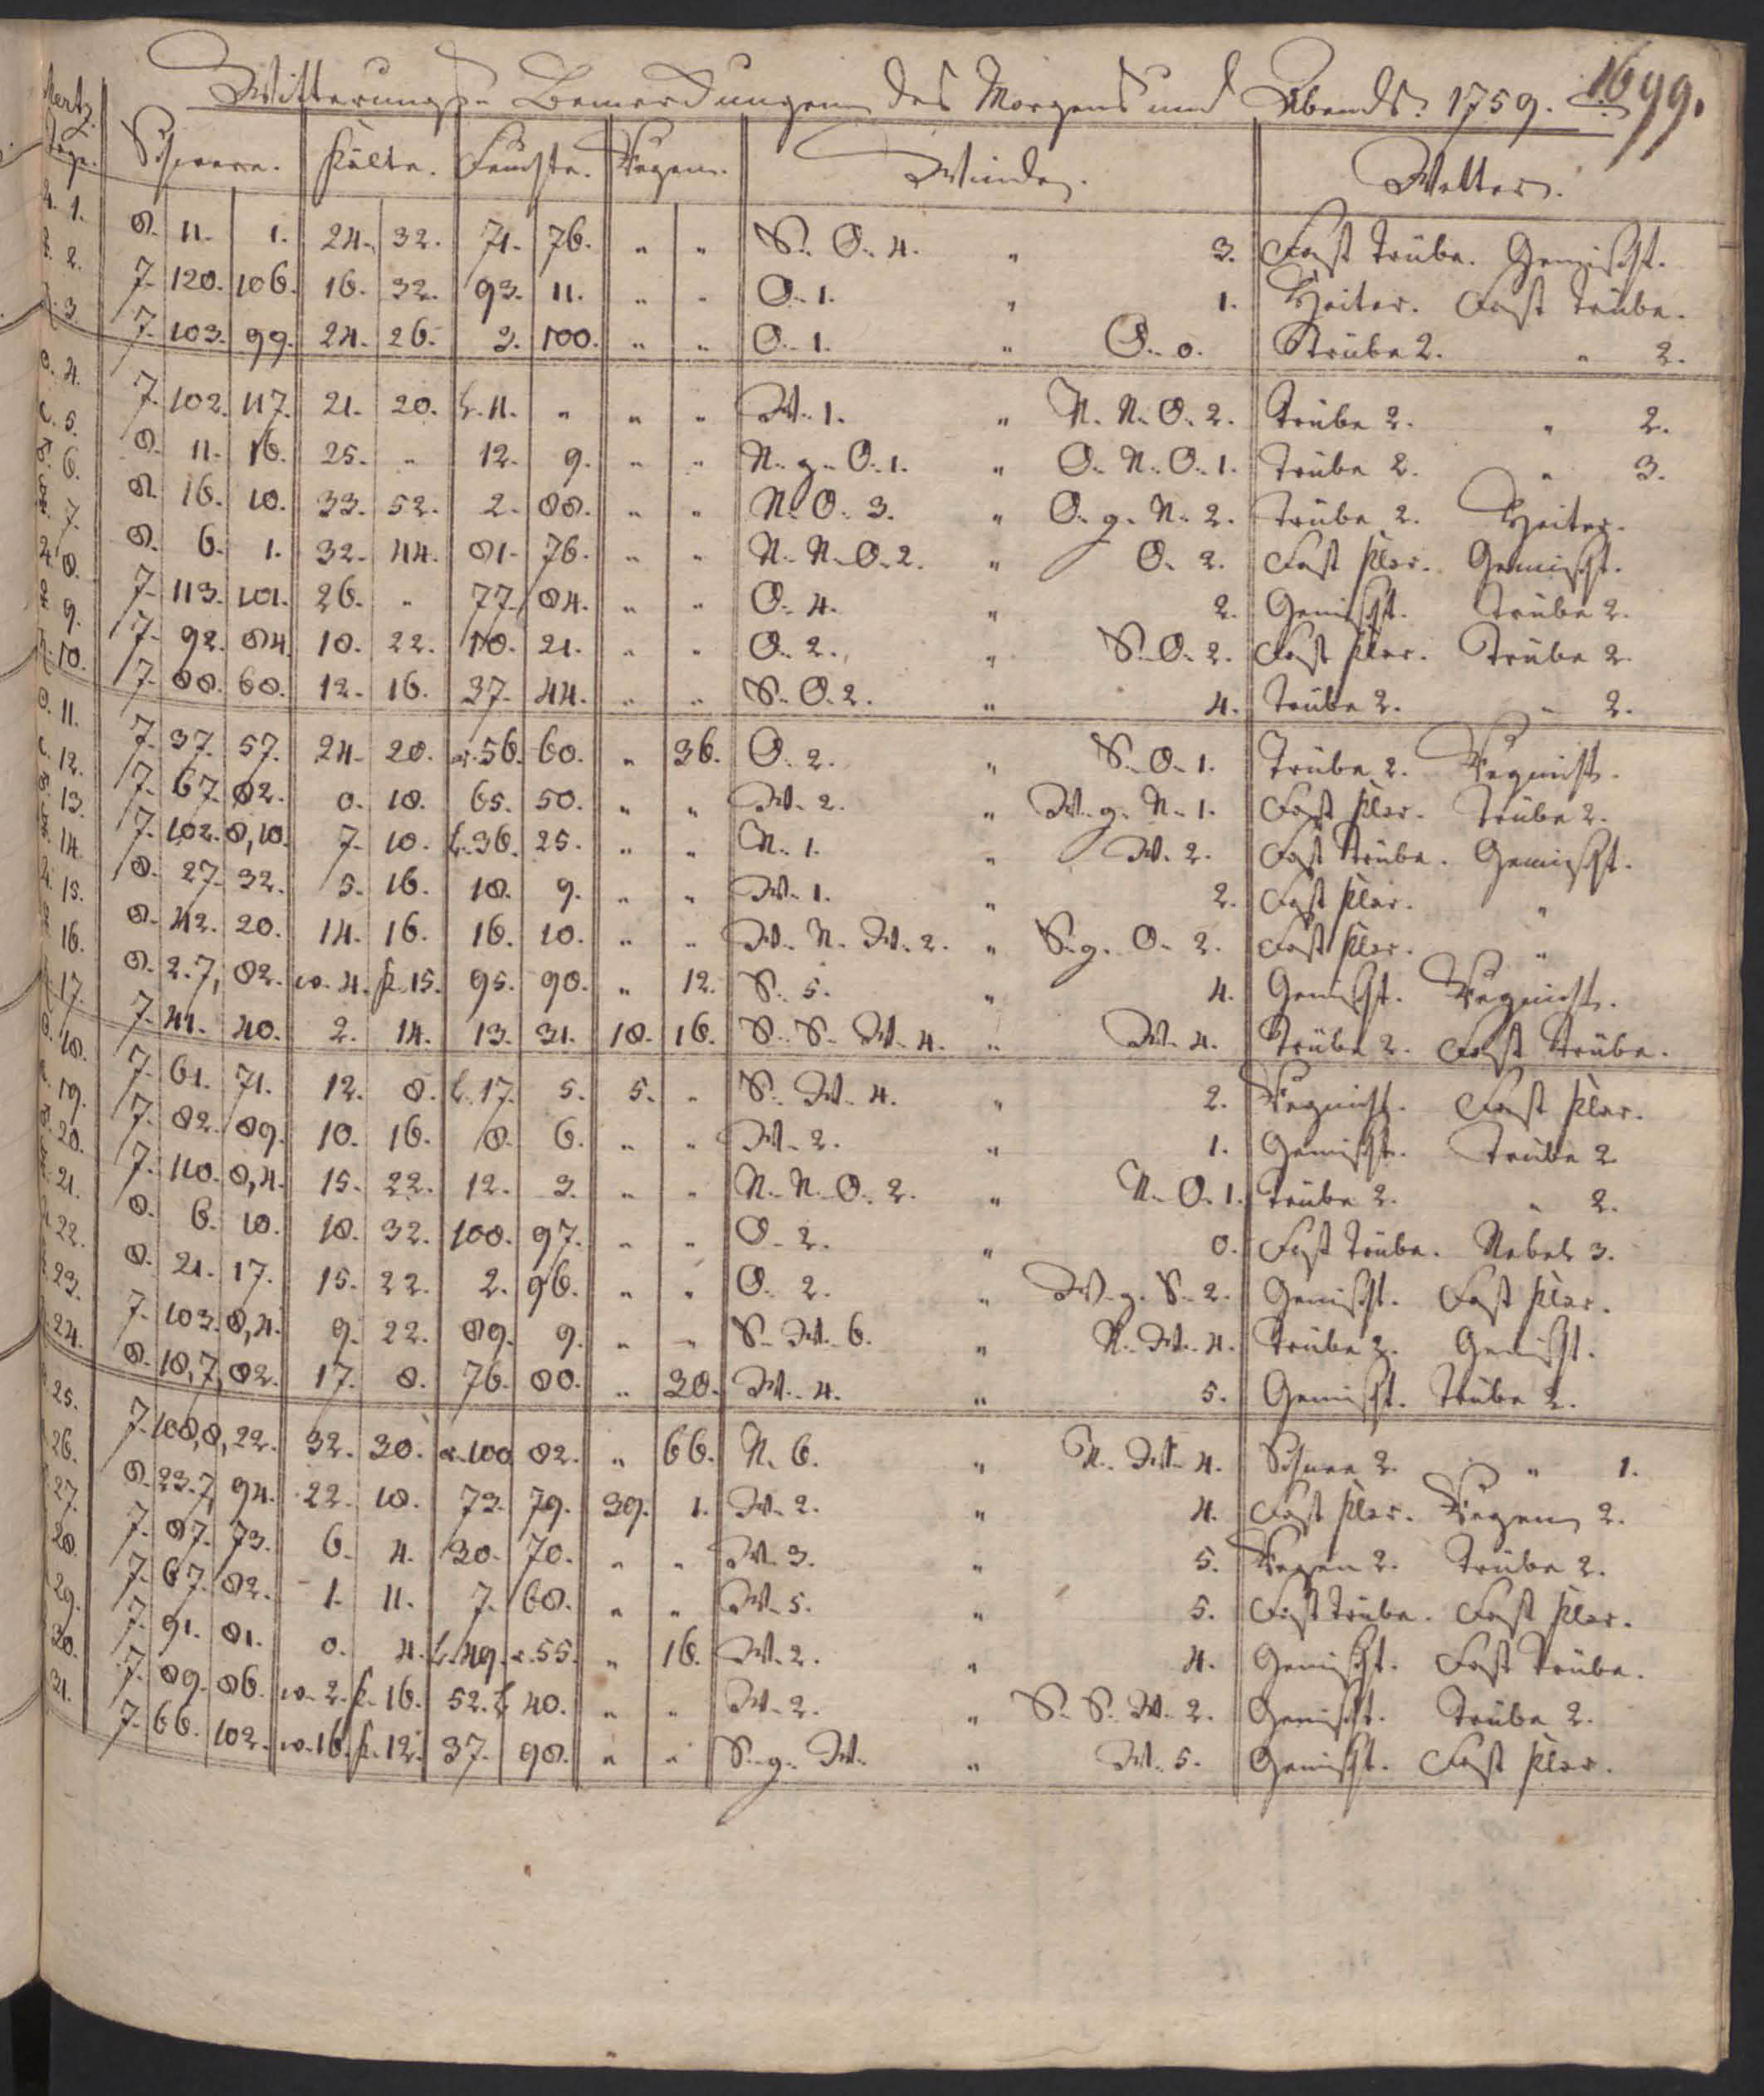 Witterungs- Bemerckungen des Morgens und Abends. 1759. 1699.
Mertz. Tage. Schwere. Kälte. Feuchte. Regen. Winde. Wetter.
1. 8. 11. 1. 24. 32. 71. 76. " " S. O. 4. " 3. Fast trübe. Gemischt.
2. 7. 120. 106. 16. 32. 93. 11. " " O. 1. " 1. Heiter. Fast trübe.
3. 7. 103. 99. 24. 26. 3. 100. " " O. 1. " O. 0. Trübe 2. " 2.
4. 7. 102. 117. 21. 20. L. 11. " " " W. 1. " N. N. O. 2. Trübe 2. " 2.
5. 8. 11. 16. 25. " 12. 9. " " N. g. O. 1. " O. N. O. 1. Trübe 2. " 3.
6. 8. 16. 10. 33. 52. 2. 88. " " N. O. 3. " O. g. N. 2. Trübe 2. Heiter.
7. 8. 6. 1. 32. 44. 81. 76. " " N. N. O. 2. " O. 2. Fast klar. Gemischt.
8. 7. 113. 101. 26. " 77. 84. " " O. 4. " 2. Gemischt. Trübe 2.
9. 7. 92. 84. 18. 22. 18. 21. " " O. 2. " S. O. 2. Fast klar. Trübe 2.
10. 7. 88. 60. 12. 16. 37. 44. " " S. O. 2. " 4. Trübe 2. " 2.
11. 7. 37. 57. 24. 20. 56. 60. " 36. O. 2. " S. O. 1. Trübe 2. Regnicht.
12. 7. 67. 82. 0. 18. 65. 50. " " W. 2. " W. g. N. 1. Fast klar. Trübe 2.
13. 7. 102. 8, 10. 7. 10. L. 36. 25. " " N. 1. " W. 2. Fast trübe. Gemischt.
14. 8. 27. 32. 5. 16. 18. 9. " " W. 1. " 2. Fast klar. "
15. 8. 42. 20. 14. 16. 16. 10. " " W. N. W. 2. " S. g. O. 2. Fast klar. "
16. 8. 2. 7, 82. w. 4. k. 15. 95. 90. " 12. S. 5. " 4. Gemischt. Regnicht.
17. 7. 41. 40. 2. 14. 13. 31. 18. 16. S. S. W. 4. " W. 4. Trübe 2. Fast trübe.
18. 7. 61. 71. 12. 8. L. 17. 5. 5. " S. W. 4. " 2. Regnicht. Fast klar.
19. 7. 82. 89. 10. 16. 8. 6. " " W. 2. " 1. Gemischt. Trübe 2
20. 7. 110. 8, 4. 15. 22. 12. 3. " " N. N. O. 2. " N. O. 1. Trübe 2. " 2.
21. 8. 6. 10. 18. 32. 100. 97. " " O. 2. " 0. Fast trübe. Nebel 3.
22. 8. 21. 17. 15. 22. 2. 96. " " O. 2. " W. g. S. 2. Gemischt. Fast klar.
23. 7. 103. 8, 4. 9. 22. 89. 9. " " S. W. 6. " N. W. 4. Trübe 2. Gemischt.
24. 8. 18, 7, 82. 17. 8. 76. 80. " 30. W. 4. " 5. Gemischt. Trübe 2.
25. 7. 108, 8, 22. 32. 30. 100. 82. " 66. N. 6. " N. W. 4. Schnee 2. " 1.
26. 8. 23. 7, 94. 22. 18. 73. 79. 39. 1. W. 2. " 4. Fast klar. Regen 2.
27. 7. 87. 73. 6. 4. 30. 70. " " W. 3. " 5. Regen 2. Trübe 2.
28. 7. 67. 82. 1. 11. 7. 68. " " W. 5. " 5. Fast trübe. Fast klar.
29. 7. 91. 81. 0. 4. L. 49. 55. " 16. W. 2. " 4. Gemischt. Fast trübe.
30. 7. 89. 86. w. 2. k. 16. 52. L. 40. " " W. 2. " S. S. W. 2. Gemischt. Trübe 2.
31. 7. 66. 102. w. 16. k. 12. 37. 98. " " S. g. W. " W. 5. Gemischt. Fast klar.